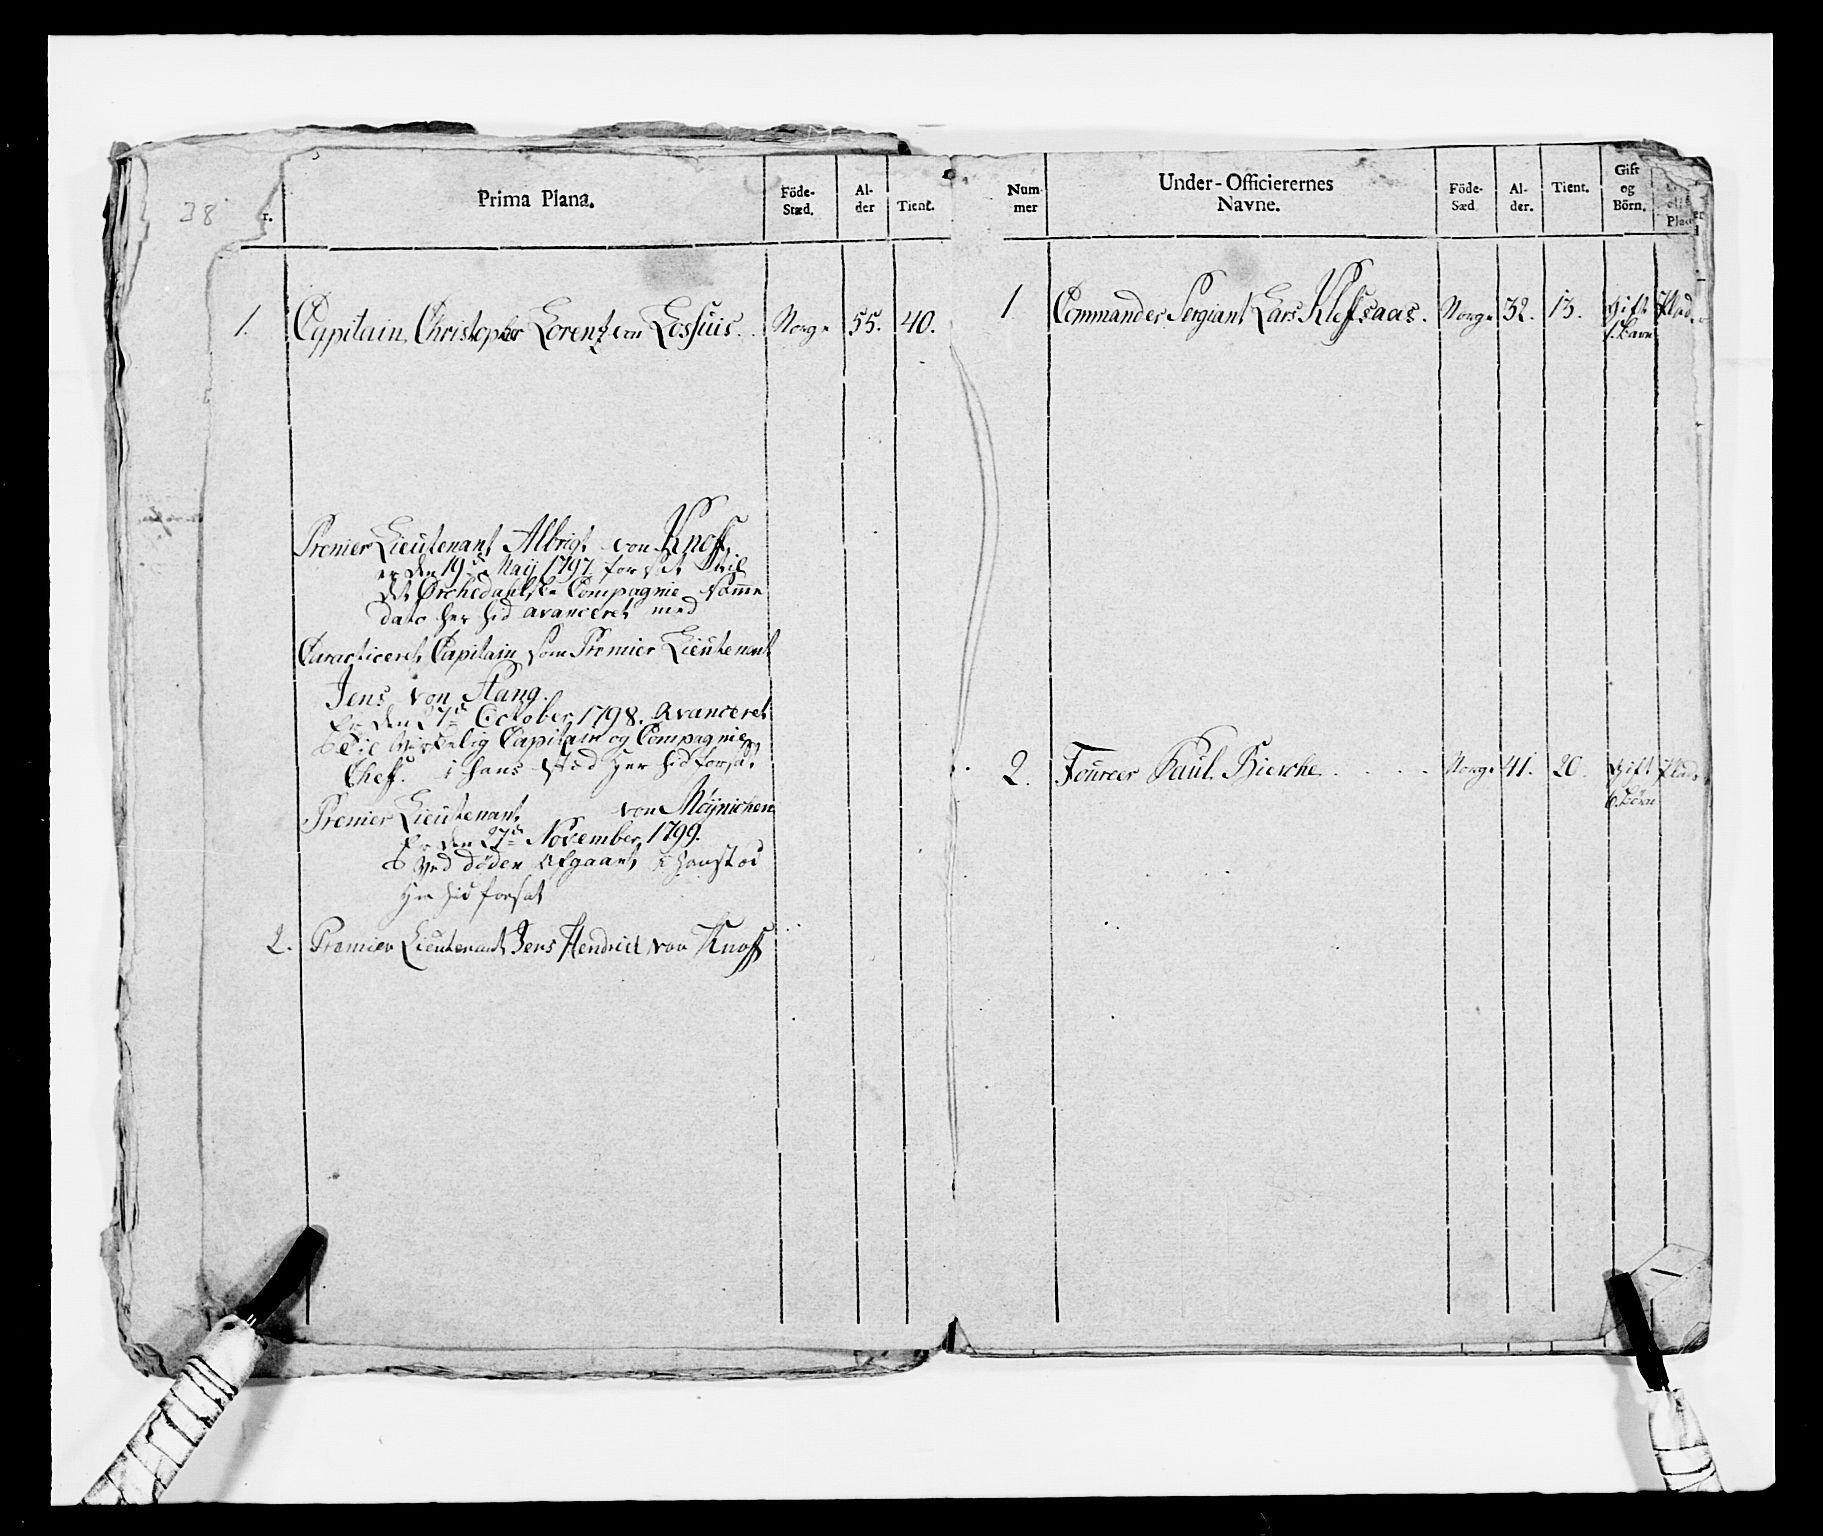 38
r.
Prima Plana.
Föde-
Stæd.
Al-
der
Tient.
1. Capitain Christopher Lorentz von Loshuis. Norge 55. 40.
Premier Lieutenant Albrigt von Knoff,
er den 19de Maij 1797 forsat til
detØrchedahlske Compagnie, samme
dato her hid avanceret med
Caracticeret Capitain som Premier Lieutenant
Jens von Stang.
Er den 27de October 1798. avanceret
til Virkelig Capitain og Compagnie
Chef. i hans stæd her hid forsat
Premier Lieutenant von Møjnichen
Er den 27de November 1799.
ved døden afgaaet, i hans stæd
her hid forsat
2. Premier Lieutenant Jens Hendrich von Knoff
Num-
mer
Under-Officierernes
Navne.
Föde-
Sæd
Al-
der.
Tient.
Gift
og
Börn.
1 Commander Sergiant Lars Kleffsaas. Norge 32. 13. Gift
1. barn
2. Foureer Paul Biesche Norge 41. 20. Gift
6. børn